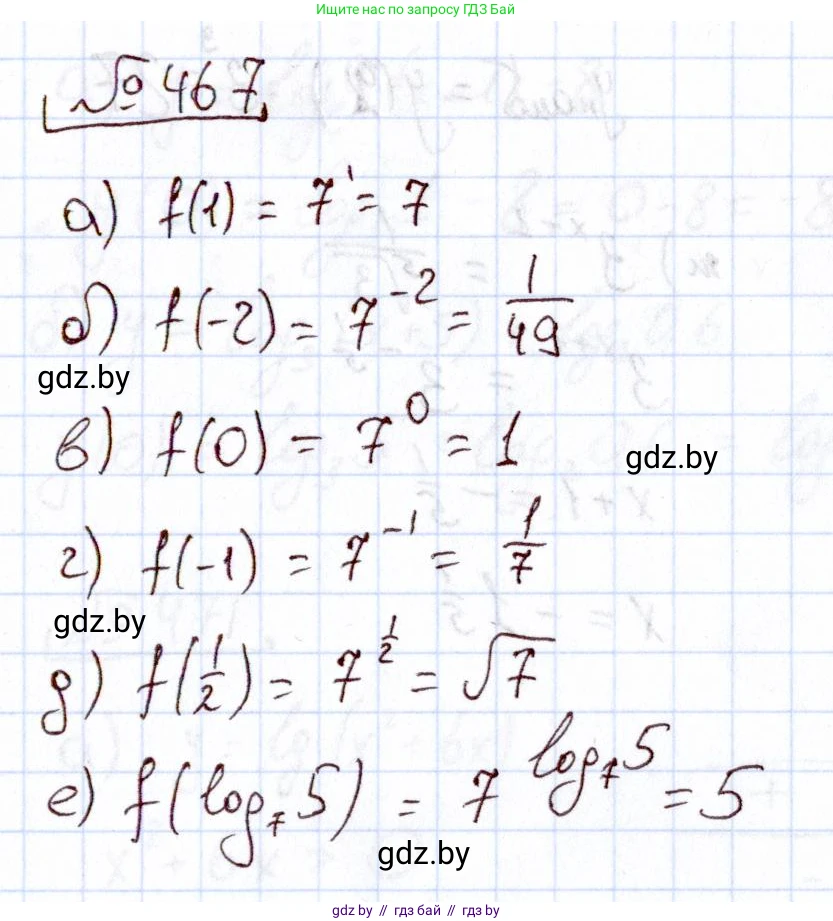 Ищите нас по запросу ГДЗ Бай
№ 467
а) f(1) = 7¹ = 7
б) f(-2) = 7⁻² = 1/49
gdz.by
в) f(0) = 7⁰ = 1
gdz.by
г) f(-1) = 7⁻¹ = 1/7
gdz.by
д) f(1/2) = 7^(1/2) = √7
е) f(log₇5) = 7^(log₇5) = 5
gdz.by
gdz.by // гдз бай // гдз by